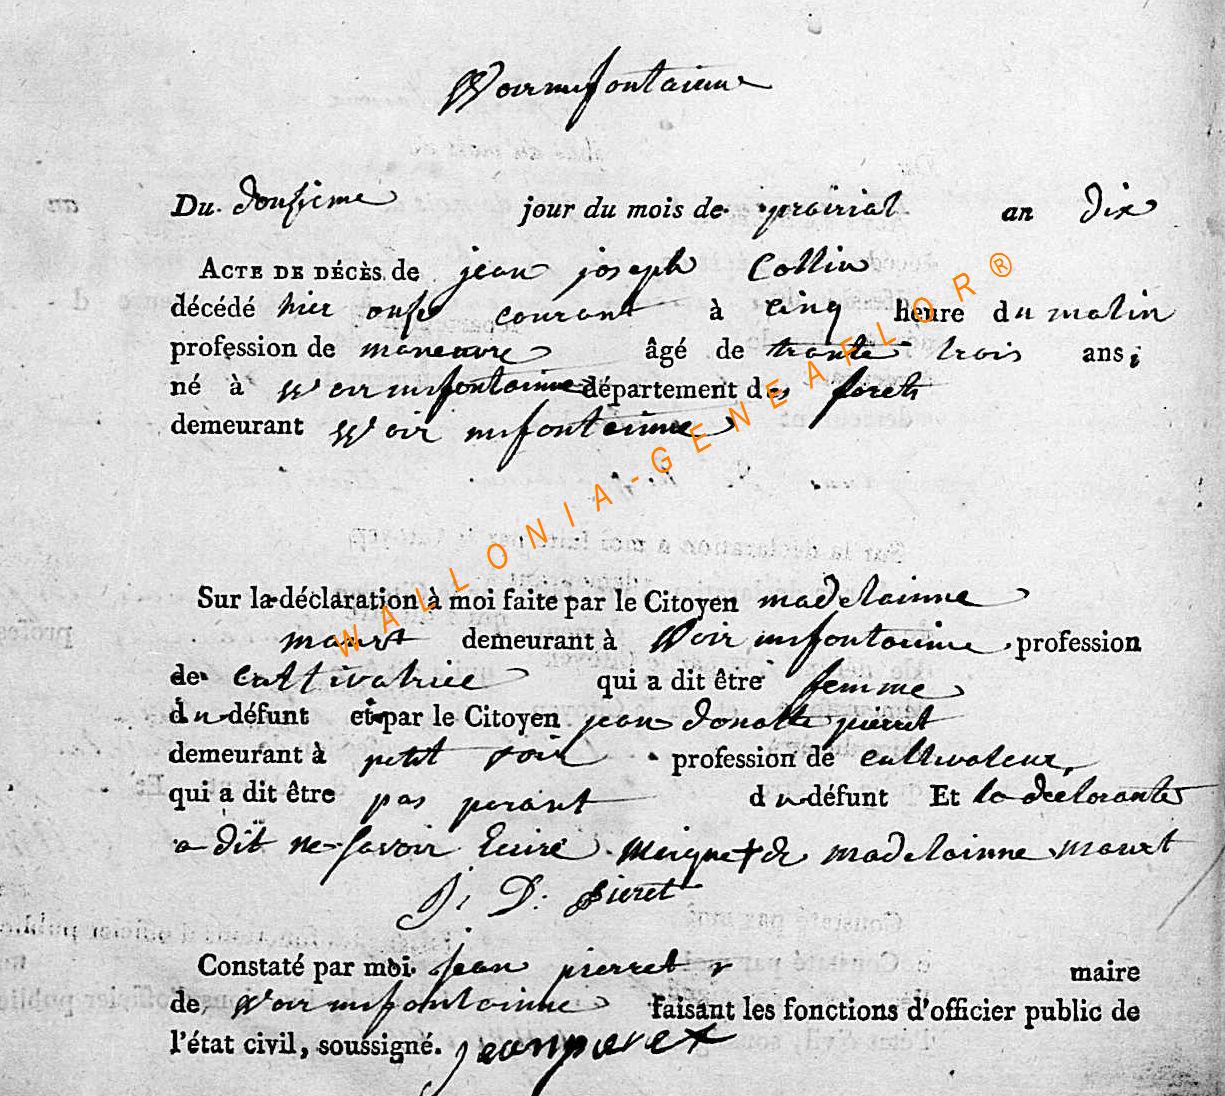 Woirmifontainne
Du donsieme jour du mois de prairial an dix
ACTE DE DÉCÈS de jean joseph Collin
décédé hier onse courant à cinq heure du matin
profession de maneuvre âgé de trante trois ans;
né à Woirmifontainne département des forets
demeurant Woir mifontainne
WALLONIA-GENEAFLOR®
Sur la déclaration à moi faite par le Citoyen madelainne
maust demeurant à Woir mifontainne profession
de cultivatrice qui a dit être femme
du défunt et par le Citoyen jean donatte pierret
demeurant à petit voir profession de cultivateur
qui a dit être pas parant du défunt Et la declorante
a dit ne savoir Ecrire marque † de madelainne maust
J: D: Pieret
Constaté par moi jean pierret maire
de Woir mifontainne faisant les fonctions d'officier public de
l'état civil, soussigné. jean pieret